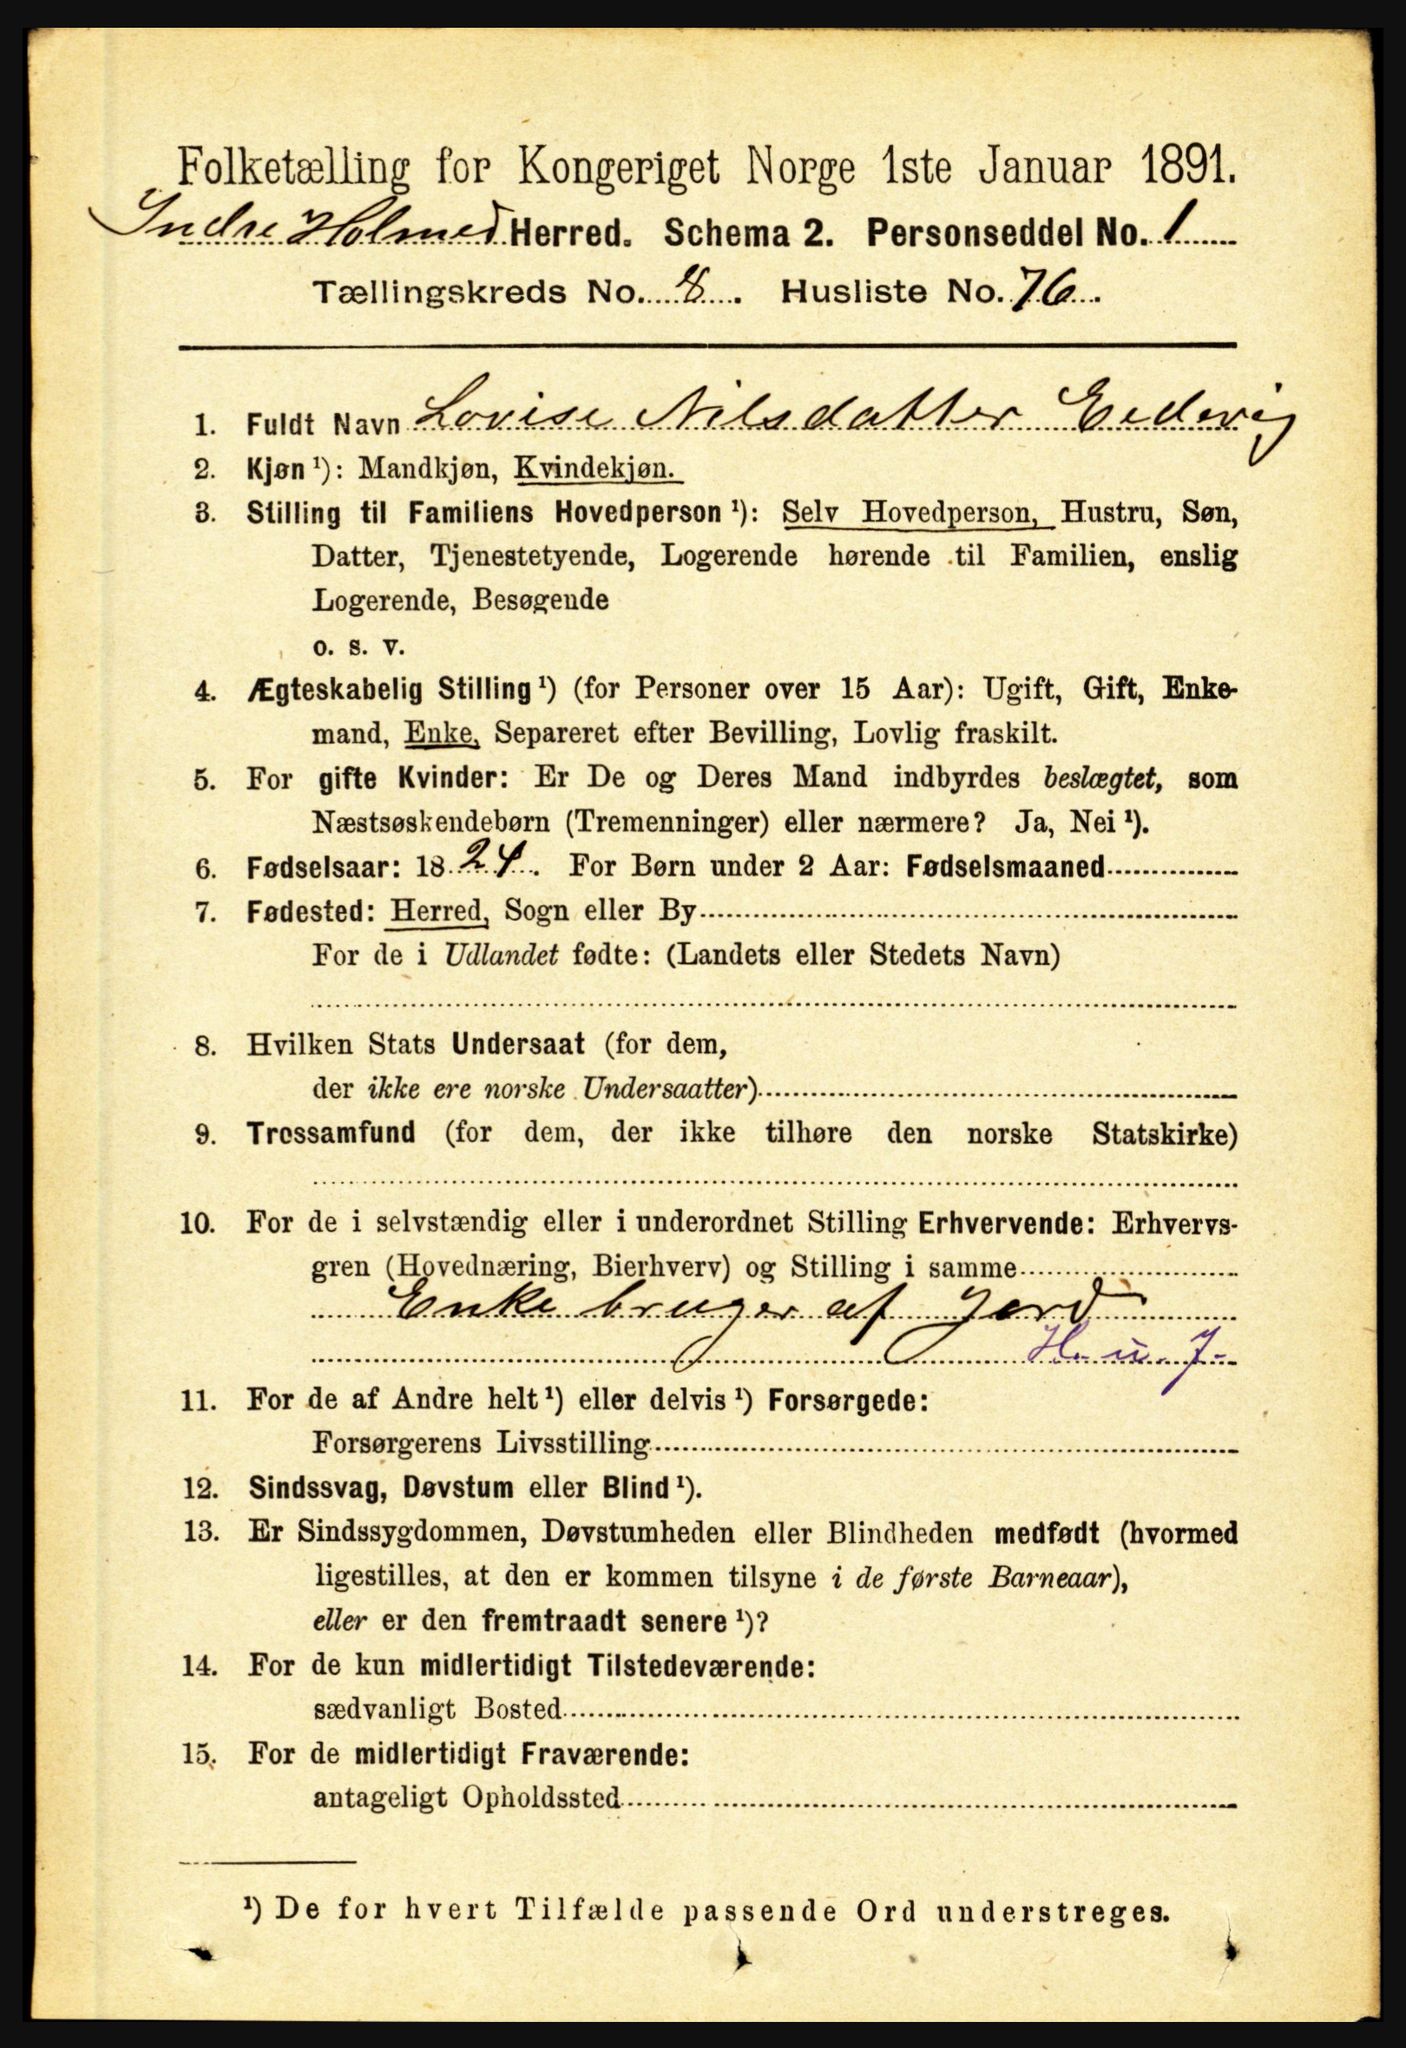 Folketælling for Kongeriget Norge 1ste Januar 1891.
Indre Holmed Herred. Schema 2. Personseddel No. 1
Tællingskreds No. 8. Husliste No. 76.
1. Fuldt Navn Lovise Nilsdatter Eidevig
2. Kjøn ¹): Mandkjøn, Kvindekjøn.
3. Stilling til Familiens Hovedperson ¹): Selv Hovedperson, Hustru, Søn,
Datter, Tjenestetyende, Logerende hørende til Familien, enslig
Logerende, Besøgende
o. s. v.
4. Ægteskabelig Stilling ¹) (for Personer over 15 Aar): Ugift, Gift, Enke-
mand, Enke, Separeret efter Bevilling, Lovlig fraskilt.
5. For gifte Kvinder: Er De og Deres Mand indbyrdes beslægtet, som
Næstsøskendebørn (Tremenninger) eller nærmere? Ja, Nei ¹).
6. Fødselsaar: 1824. For Børn under 2 Aar: Fødselsmaaned
7. Fødested: Herred, Sogn eller By
For de i Udlandet fødte: (Landets eller Stedets Navn)
8. Hvilken Stats Undersaat (for dem,
der ikke ere norske Undersaatter)
9. Trossamfund (for dem, der ikke tilhøre den norske Statskirke)
10. For de i selvstændig eller i underordnet Stilling Erhvervende: Erhvervs-
gren (Hovednæring, Bierhverv) og Stilling i samme
Enke bruger af Jord
H. u. J.
11. For de af Andre helt ¹) eller delvis ¹) Forsørgede:
Forsørgerens Livsstilling
12. Sindssvag, Døvstum eller Blind ¹).
13. Er Sindssygdommen, Døvstumheden eller Blindheden medfødt (hvormed
ligestilles, at den er kommen tilsyne i de første Barneaar),
eller er den fremtraadt senere ¹)?
14. For de kun midlertidigt Tilstedeværende:
sædvanligt Bosted
15. For de midlertidigt Fraværende:
antageligt Opholdssted
¹) De for hvert Tilfælde passende Ord understreges.